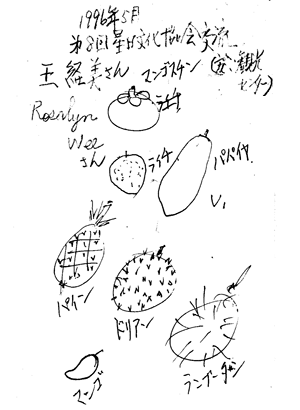 1996年5月
第8回星日文化協会交流
王 経美さん マンゴスチン
観光
センター)
Rosalyn
Wee
さん
ライチ
パパイヤ
パイン
ドリアン
ランブータン
マンゴ